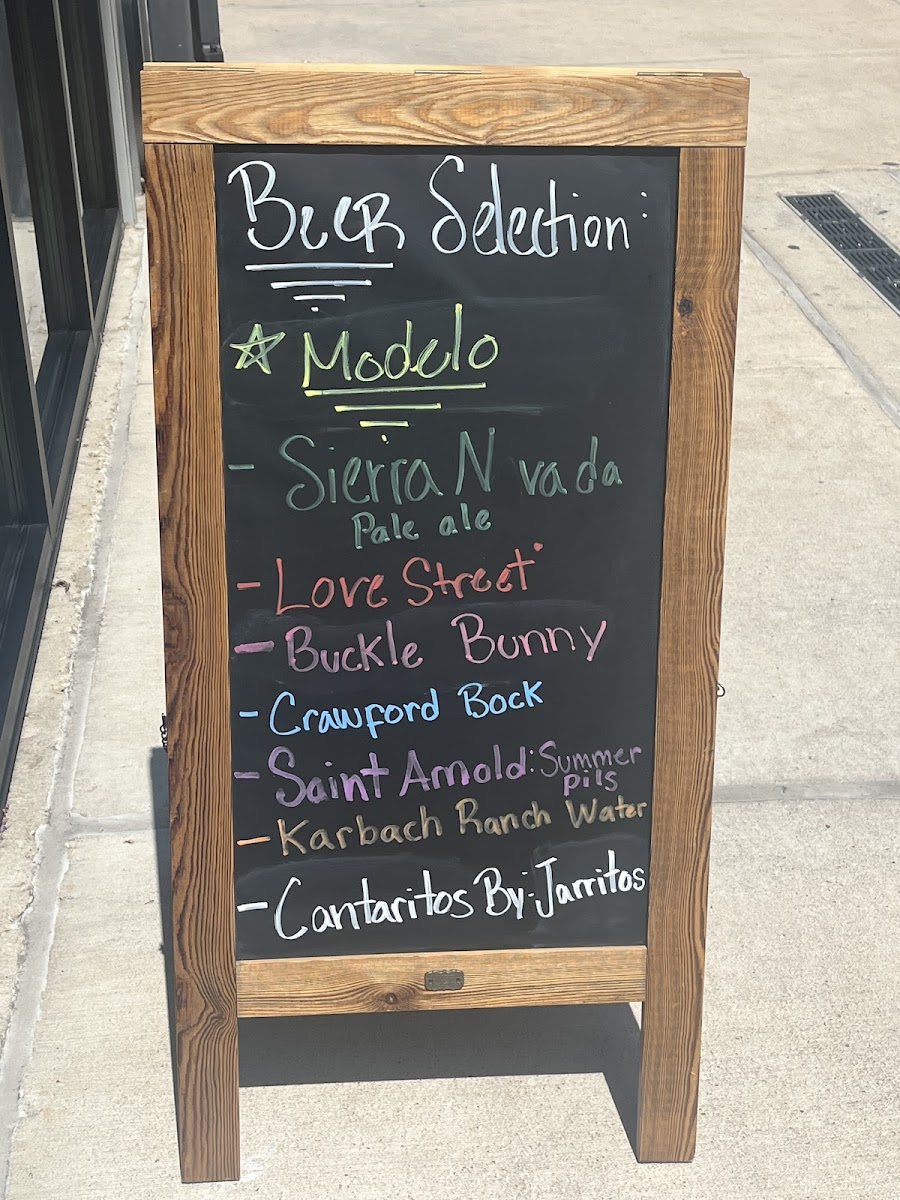 Beer Selection:
☆ Modelo
- Sierra N vada
Pale ale
- Love Street
- Buckle Bunny
- Crawford Bock
- Saint Arnold: Summer
Pils
- Karbach Ranch Water
- Cantaritos By: Jarritos